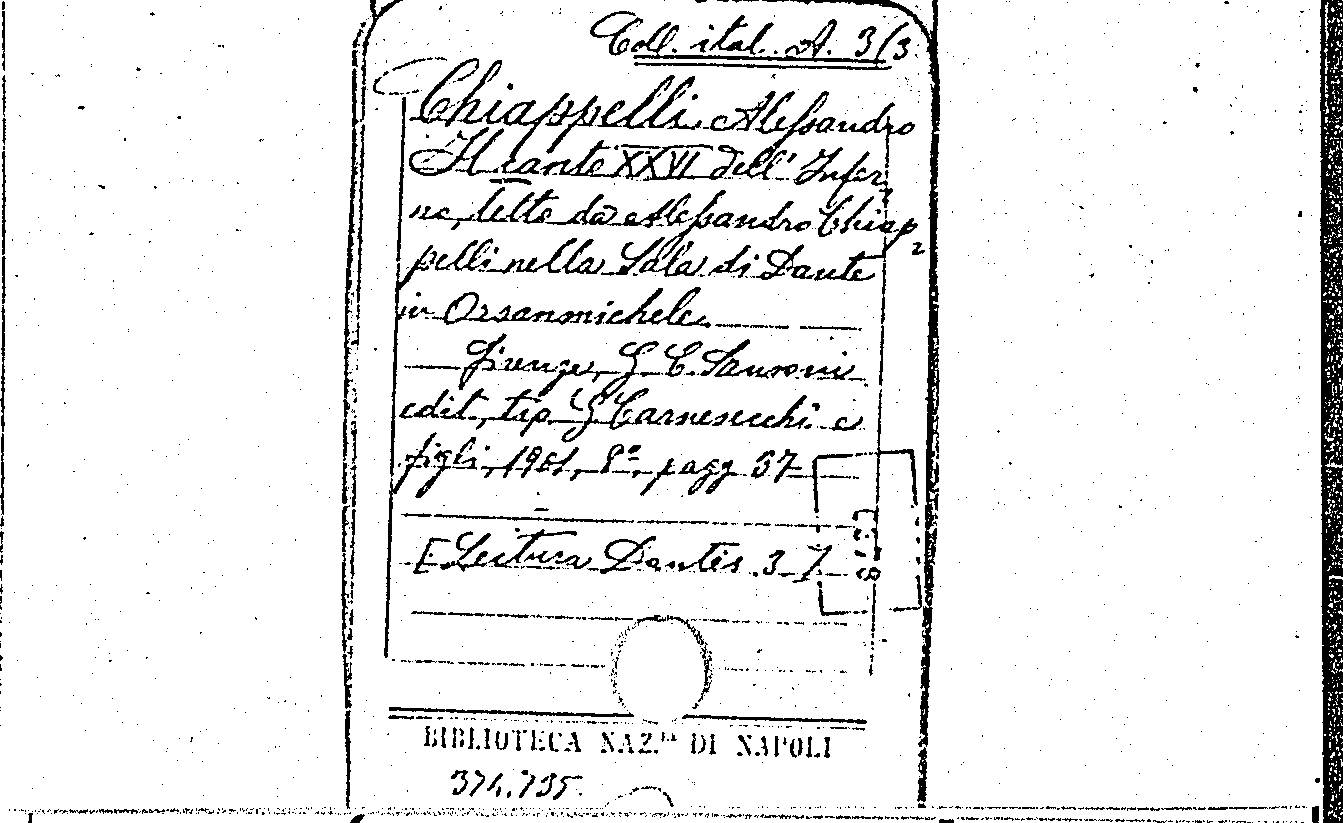 Coll. ital. A. 3/3
Chiappelli, Alessandro
Il canto XXVI dell' Infer=
no, letto da Alessandro Chiap=
pelli nella Sala di Dante
in Orsanmichele.
Firenze, G. C. Sansoni
edit., tip. G. Carnesecchi e
figli, 1901, 8º, pagg 37
[Lectura Dantis. 3]
BIBLIOTECA NAZ.le DI NAPOLI
374.735.